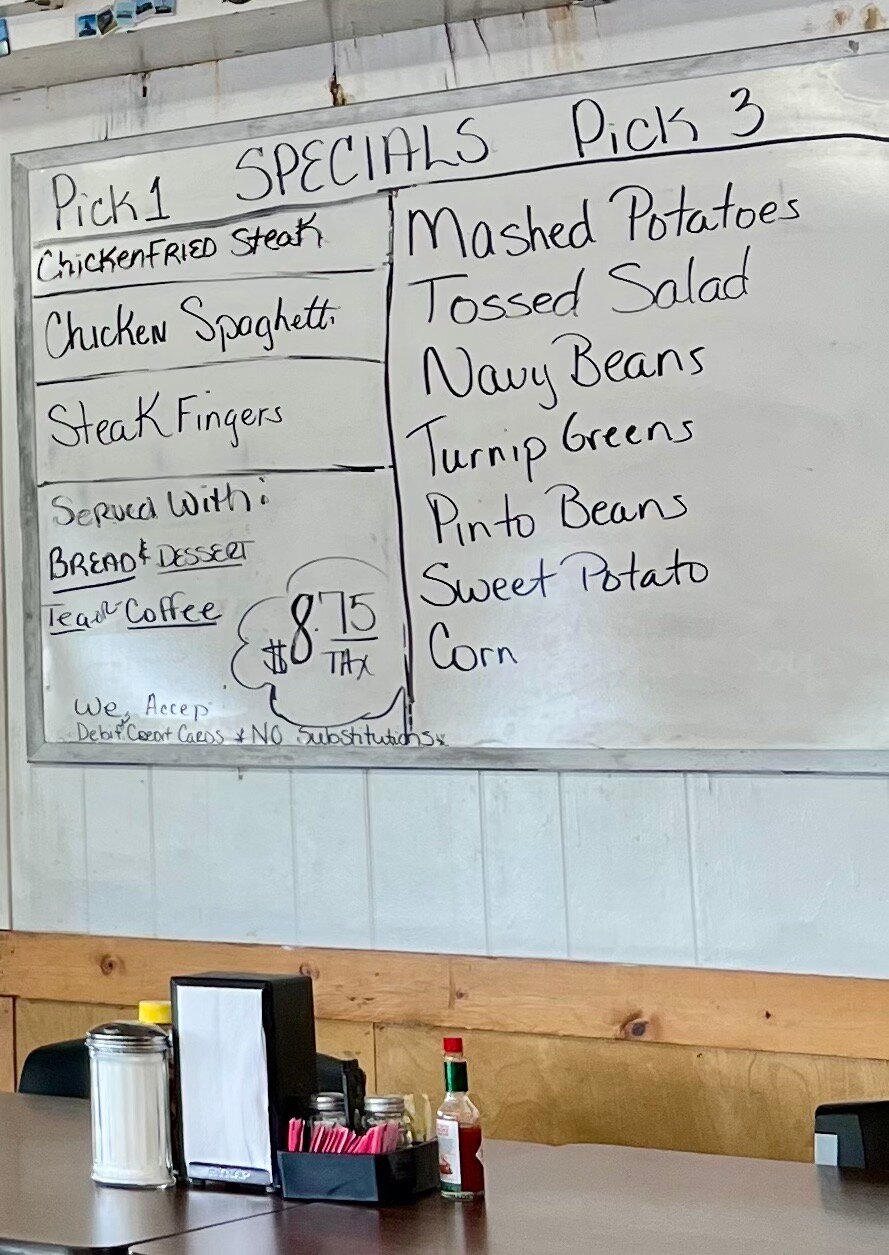 Pick 1 SPECIALS Pick 3
ChickenFRIED Steak
Chicken Spaghetti
Steak Fingers
Served With:
BREAD & DESSERT
Tea or Coffee
$8.75
TAX
We Accep
Debit Credit Cards * NO Substitutions *
Mashed Potatoes
Tossed Salad
Navy Beans
Turnip Greens
Pinto Beans
Sweet Potato
Corn